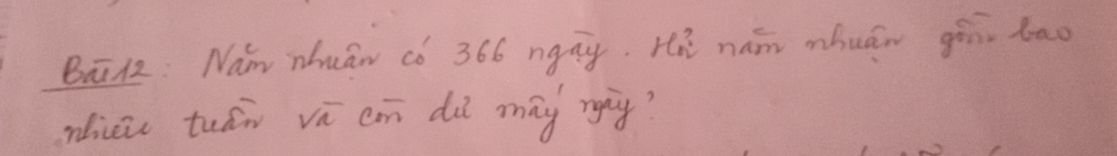 Bài 12: Năm nhuận có 366 ngày. Hỏi năm nhuận gồm bao
nhiêu tuần và còn dư mấy ngày?